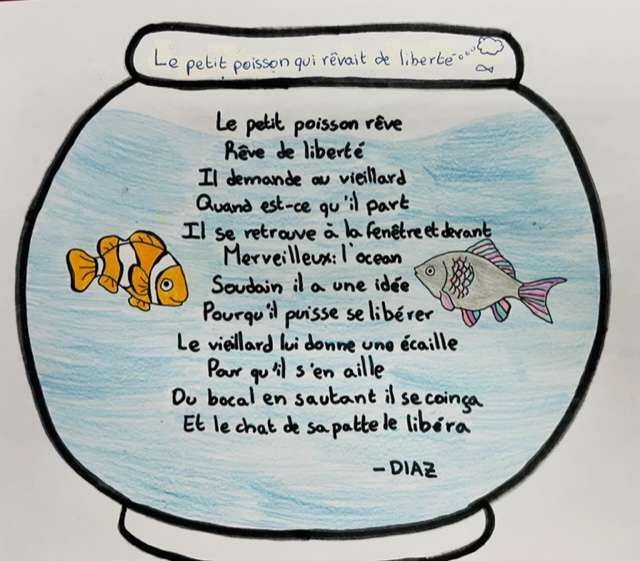 Le petit poisson qui rêvait de liberté
Le petit poisson rêve
Rêve de liberté
Il demande au vieillard
Quand est-ce qu'il part
Il se retrouve à la fenêtre et devant
Merveilleux: l'ocean
Soudain il a une idée
Pourqu'il puisse se libérer
Le vieillard lui donne une écaille
Pour qu'il s'en aille
Du bocal en sautant il se coinça
Et le chat de sa patte le libéra
-DIAZ